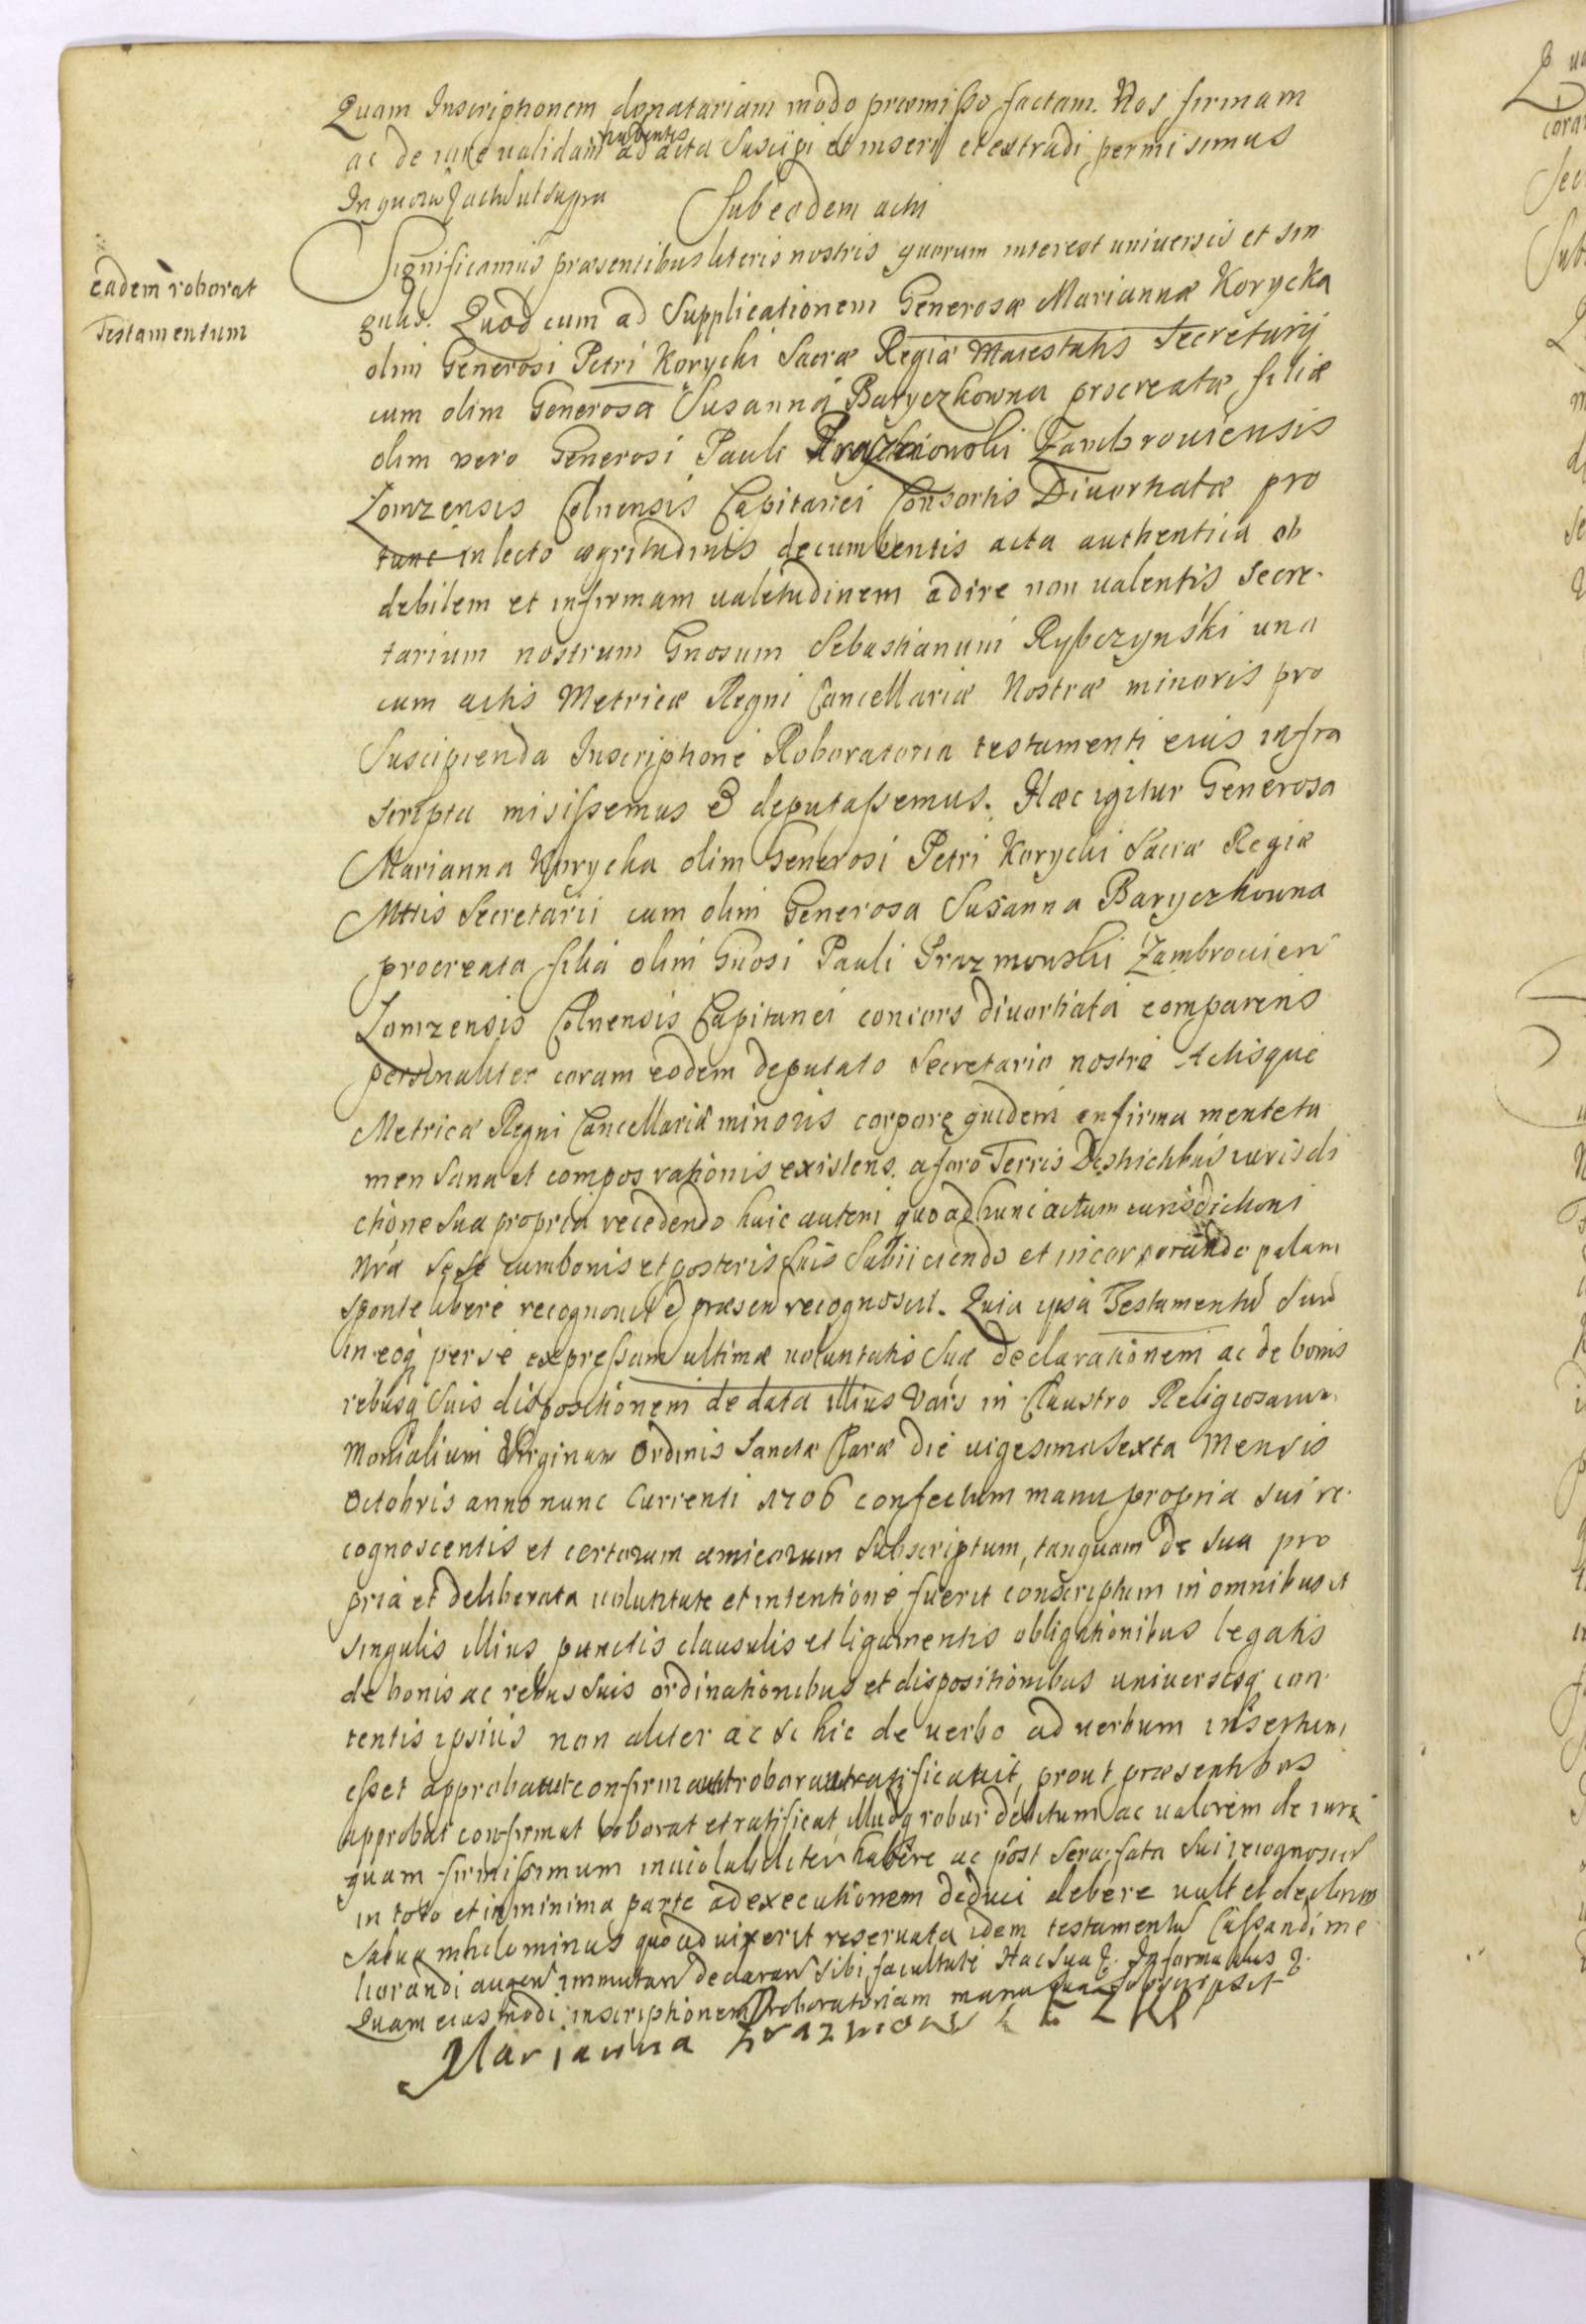 Quam Inscriptionem donatariam modo præmisso factam. Nos firmam
ac de iure validam habentes ad acta Suscipi et inseri et extradi permisimus
In quorũ Actũ ut supra Sub eodem actu
eadem roborat
Testamentum
Significamus præsentibus literis nostris quorum interest universis et sin
gulis. Quod cum ad Supplicationem Generosæ Mariannæ Korycka
olim Generosi Petri Korycki Sacræ Regiæ Maiestatis Secretarij
cum olim Generosa Susanna Baryczkowna procreatæ filiæ
olim vero Generosi Pauli Grazmowski Zambrouiensis
Lomzensis Colnensis Capitanei Consortis Diuortiatæ pro
tunc in lecto ægritudinis decumbentis acta authentica ob
debilem et infirmam ualetudinem adire non ualentis Secre-
tarium nostrum Gnosum Sebastianum Rybczynski una
cum actis Metricæ Regni Cancellariæ Nostræ minoris pro
Suscipienda Inscriptione Roboratoria testamenti eius infra
scripta misissemus & deputassemus. Hæc igitur Generosa
Marianna Korycka olim Generosi Petri Korycki Sacræ Regiæ
Mttis Secretarii cum olim Generosa Susanna Baryczkowna
procreata filia olim Gnosi Pauli Grazmowski Zambrouien
Lomzensis Colnensis Capitanei consors diuortiata comparens
personaliter coram eodem deputato Secretario nostro Actisque
Metricæ Regni Cancellariæ minoris corpore quidem infirma mente ta
men sana et compos rationis existens, a foro Terris Districtibus iurisdi
ctione sua propria recedendo huic autem quo ad hunc actum iurisdictioni
nræ sese cum bonis et posteris suis Subiiciendo et incorporando palam
sponte libere recognouit & præsen recognoscit. Quia ipsa Testamentũ Suũ
in eoq per se expressam ultimæ uoluntatis Suæ declarationem ac de bonis
rebusq Suis dispositionem de data illius Vars in Claustro Religiosarum
Monialium Virginum Ordinis Sanctæ Claræ die uigesima Sexta Mensis
Octobris anno nunc Currenti 1706 confectum manu propria sui re-
cognoscentis et certorum amicorum Subscriptum, tanquam de sua pro
pria et deliberata uoluntate et intentione fuerit conscriptum in omnibus et
singulis illius punctis clausulis et ligamentis obligationibus legatis
de bonis ac rebus suis ordinationibus et dispositionibus universisq con-
tentis ipsius non aliter ac si hic de uerbo ad uerbum insertum
esset approbauit confirmauit roborauit ratificauit, prout præsentibus
approbat confirmat roborat et ratificat illudq robur debitum ac ualorem de iure
quam firmissimum inuiolabiliter habere ac post sera fata sui recognoscen
in toto et in minima parte ad executionem deduci debere uult et declarat
Salua nihilominus quoad uixerit reseruata idem testamentũ Cassandi me
liorandi augen immutan declaran sibi facultate Hac sua &. In forma alias &.
Quam eiusmodi inscriptionem roboratoriam manu sua subscripsit
Marianna